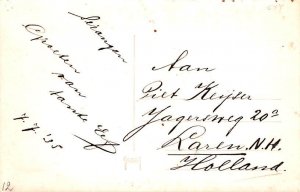 Serangan
Groeten van
tante Els
7/7 '35
Aan
Piet Keijser
Jagersweg 20ᵃ
Laren. N.H.
Holland.
12